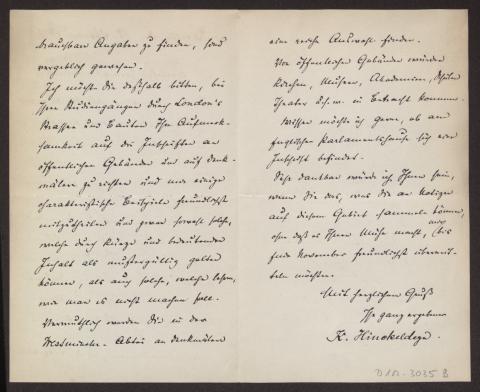 brauchbare Angaben zu finden, sind
vergeblich gewesen.
Ich möchte Sie deßhalb bitten, bei
Ihren Studiengängen durch London's
Strassen und Bauten Ihre Aufmerk-
samkeit auf die Inschriften an
öffentlichen Gebäuden und auf Denk-
mälern zu richten und mir einige
charakteristische Beispiele freundlichst
mitzutheilen und zwar sowohl solche,
welche durch Kürze und bedeutenden
Inhalt als mustergültig gelten
können, als auch solche, welche lehren,
wie man es nicht machen soll.
Vermuthlich werden Sie in der
Westminster-Abtei an Denkmälern
eine reiche Auswahl finden.
Von öffentlichen Gebäuden würden
Kirchen, Museen, Akademien, Schulen
Theater u.s.w. in Betracht kommen.
Wissen möchte ich gern, ob am
englischen Parlamentshause sich eine
Inschrift befindet.
Sehr dankbar würde ich Ihnen sein,
wenn Sie das, was Sie an Notizen
auf diesem Gebiet sammeln können,
ohne daß es Ihnen Mühe macht, mir bis
Ende November freundlichst übermit-
teln möchten.
Mit herzlichem Gruß
Ihr ganz ergebener
K. Hinckeldeyn.
D 102-3035 B